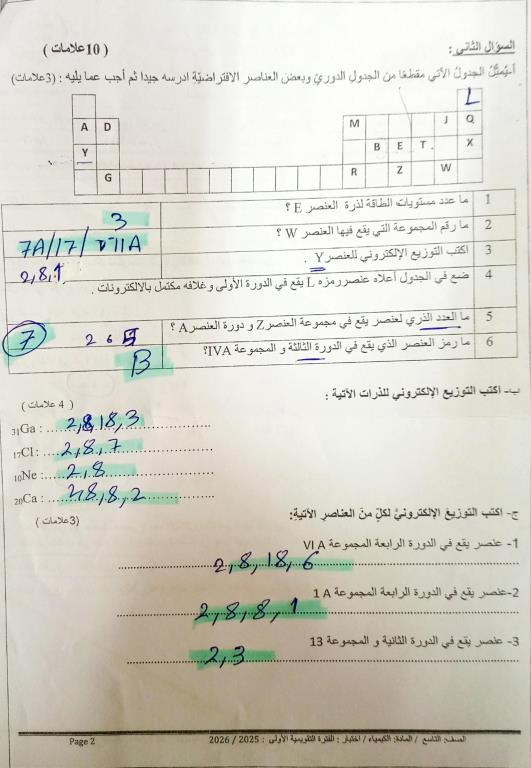 السؤال الثاني : ( 10 علامات )
أ-يُمثِّلُ الجدولُ الآتي مقطعًا من الجدولِ الدوريّ وبعضَ العناصر الافتراضيّةِ ادرسه جيدا ثم أجب عما يليه : (3علامات)
L
A D M J Q
Y B E T . X
G R Z W
1 ما عدد مستويات الطاقة لذرة العنصر E ؟ 3
2 ما رقم المجموعة التي يقع فيها العنصر W ؟ 7A/17/ VIIA
3 اكتب التوزيع الإلكتروني للعنصرY . 2,8,1
4 ضع في الجدول أعلاه عنصررمزه L يقع في الدورة الأولى وغلافه مكتمل بالالكترونات .
5 ما العدد الذري لعنصر يقع في مجموعة العنصرZ و دورة العنصرA ؟ 2 6 7
6 ما رمز العنصر الذي يقع في الدورة الثالثة و المجموعة IVA؟ B
ب- اكتب التوزيع الإلكتروني للذرات الآتية :
( 4 علامات )
31Ga : 2,8,18,3
17Cl : 2,8,7
10Ne : 2,8
20Ca : 2,8,8,2
(3علامات)
ج- اكتب التوزيعَ الإلكترونيَّ لكلٍ منَ العناصرِ الآتيةِ:
1- عنصر يقع في الدورة الرابعة المجموعة VI A
2,8,18,6
2-عنصر يقع في الدورة الرابعة المجموعة 1 A
2,8,8,1
3- عنصر يقع في الدورة الثانية و المجموعة 13
2,3
الصف: التاسع / المادة: الكيمياء / اختبار : الفترة التقويمية الأولى : 2025 / 2026
Page 2